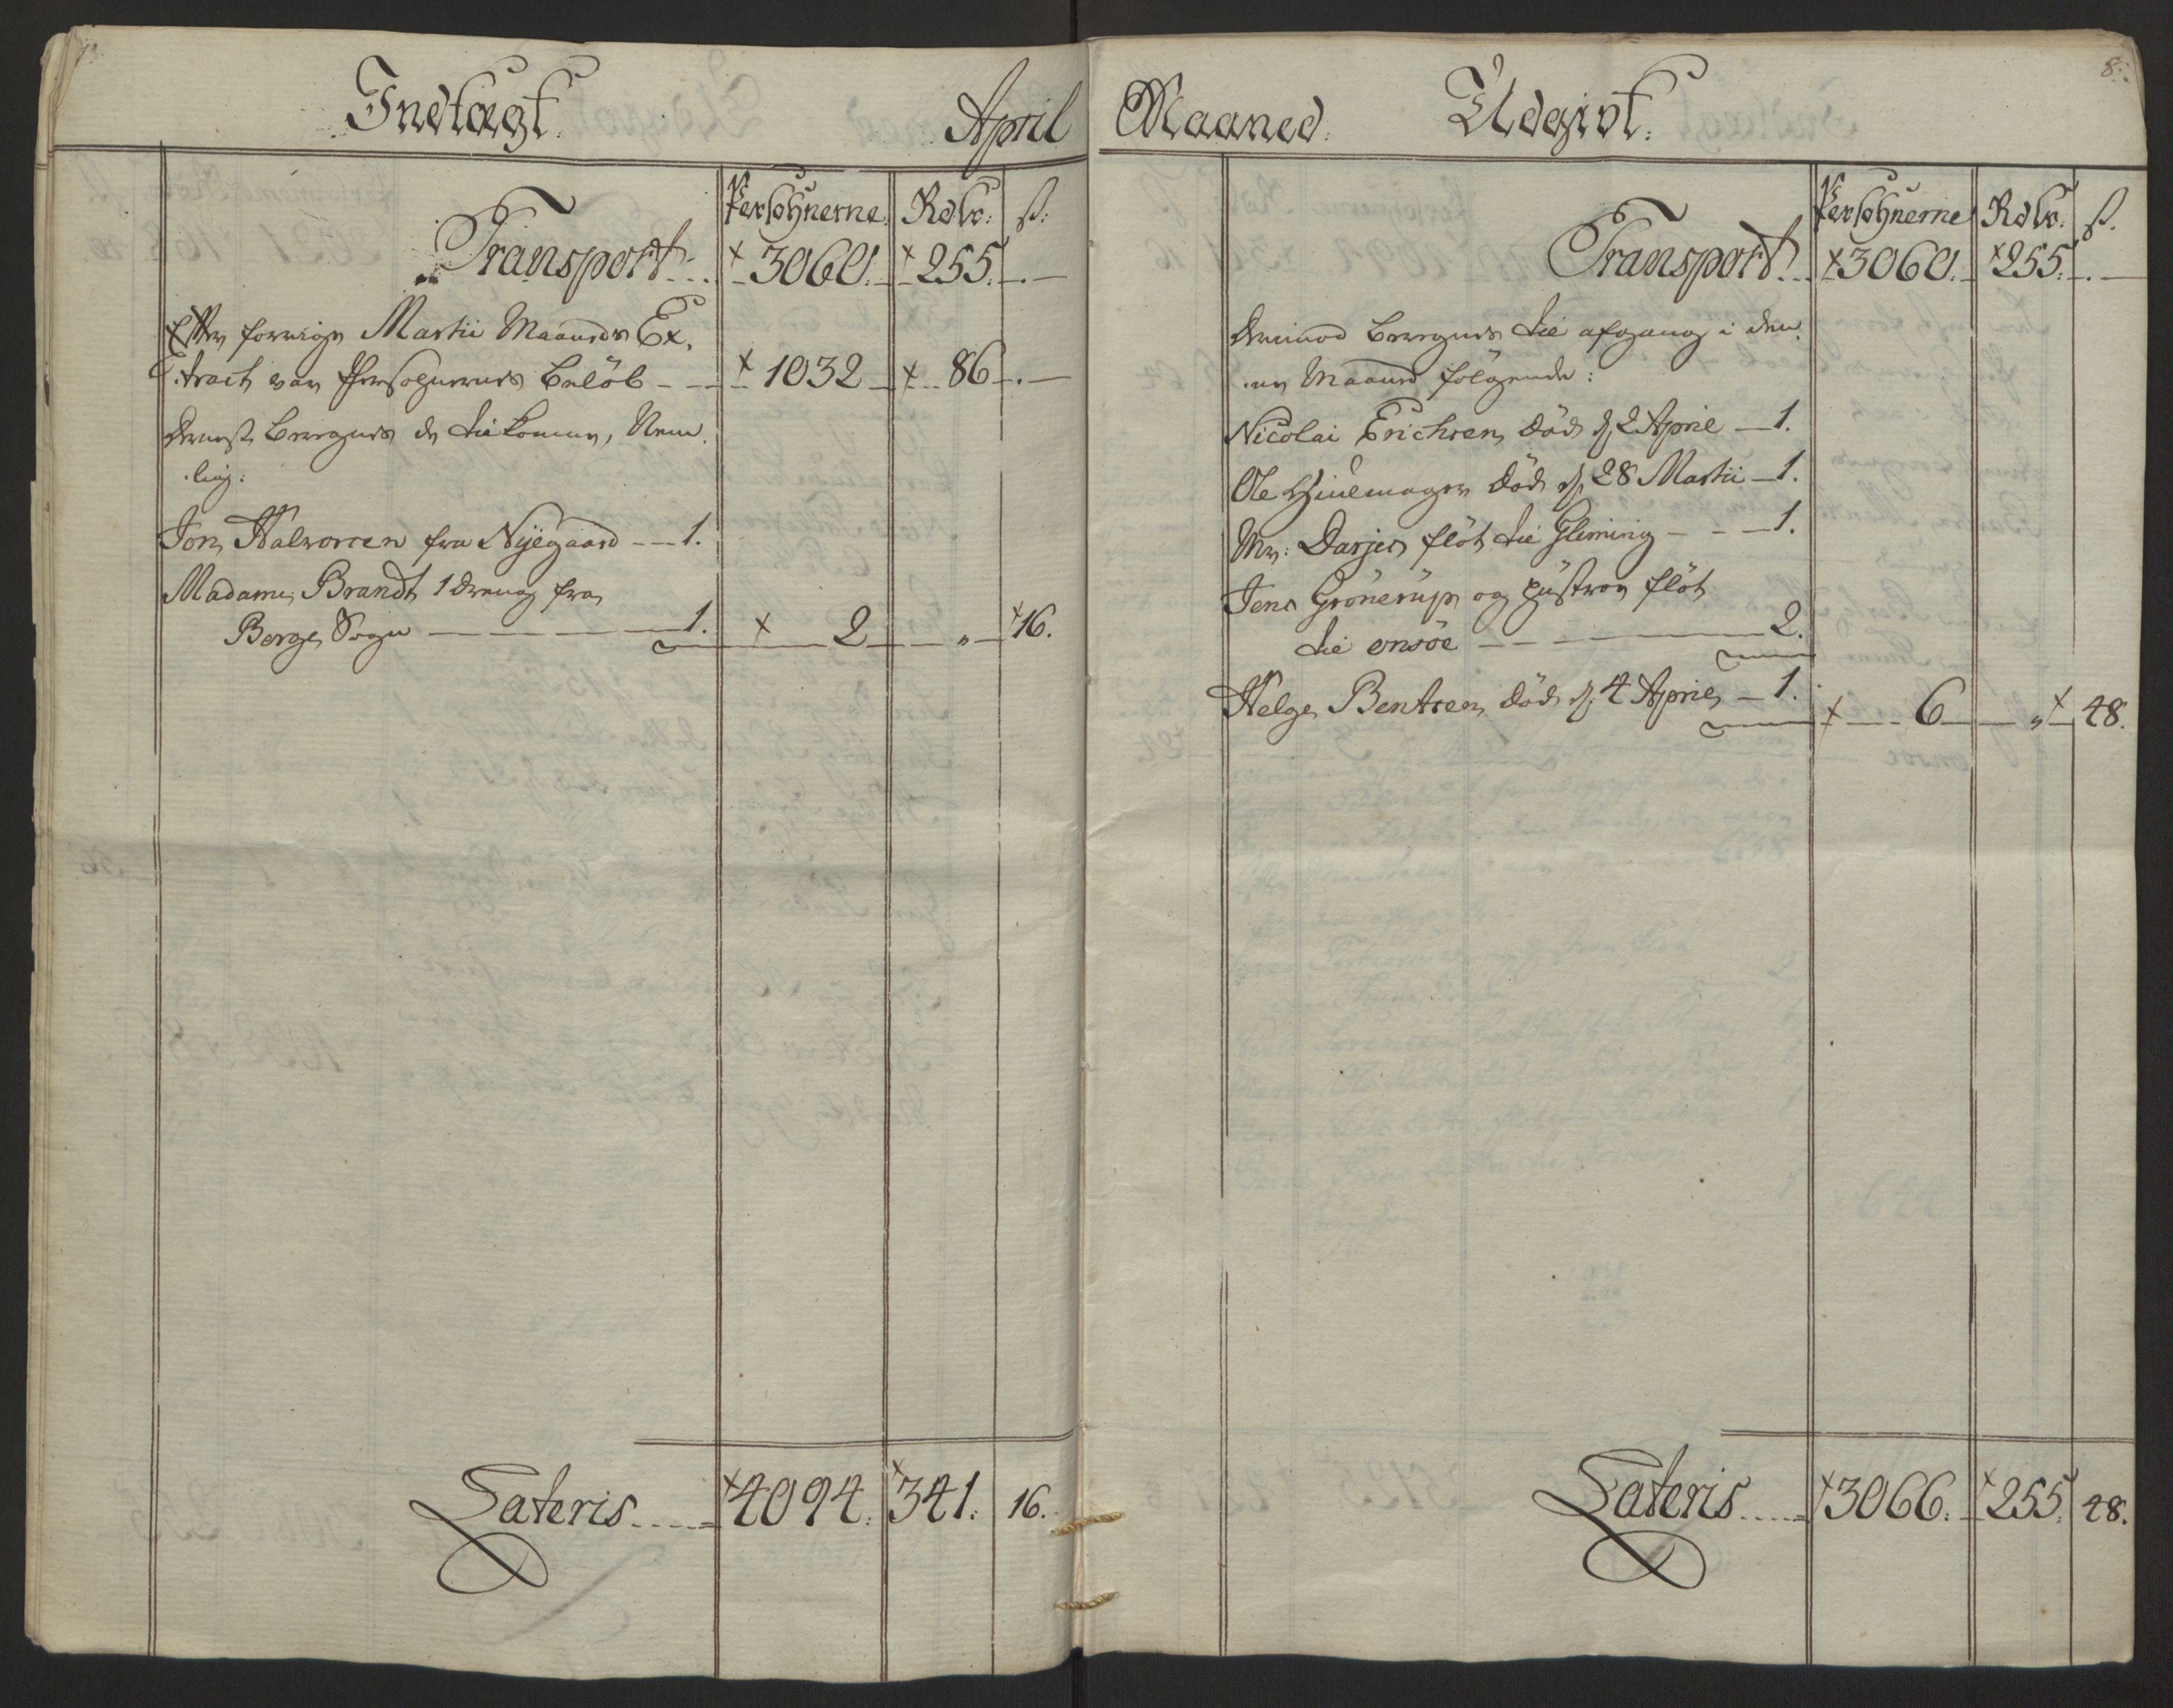 Indtægt.
April
Persohnerne. Rdlr: ß:
Transport... 3060. 255. . —
Efter forrige Martii Maaneds Ex,
tract var Persohnernes beløb — 1032 — 86 — . —
Dernest beregnes de tilkomne, Nem,
lig:
Jon Halvorsen fra Nyegaard — 1.
Madame Brandt 1 dreng fra
Borge Sogn — 1. 2 „ 16.
Lateris.... 4094. 341. 16.
8.
Maaned. Udgivt.
Persohnerne Rdlr. ß.
Transport... 3060. 255. . —
Derimod beregnes til afgang i den,
ne Maaned følgende:
Nicolai Erichsen død d. 2 April — 1.
Ole død d. 28 Martii — 1.
Mr: Darjes fløt til Gleming — 1.
Jens Grönerup og Hustroe fløt
til onsöe — 2.
Helge Bentsen død d. 4 April — 1. 6 „ 48.
Lateris.... 3066. 255. 48.